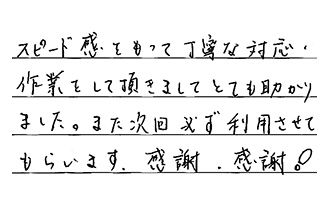 スピード感をもって丁寧な対応・
作業をして頂きましてとても助かり
ました。また次回必ず利用させて
もらいます。感謝．感謝。